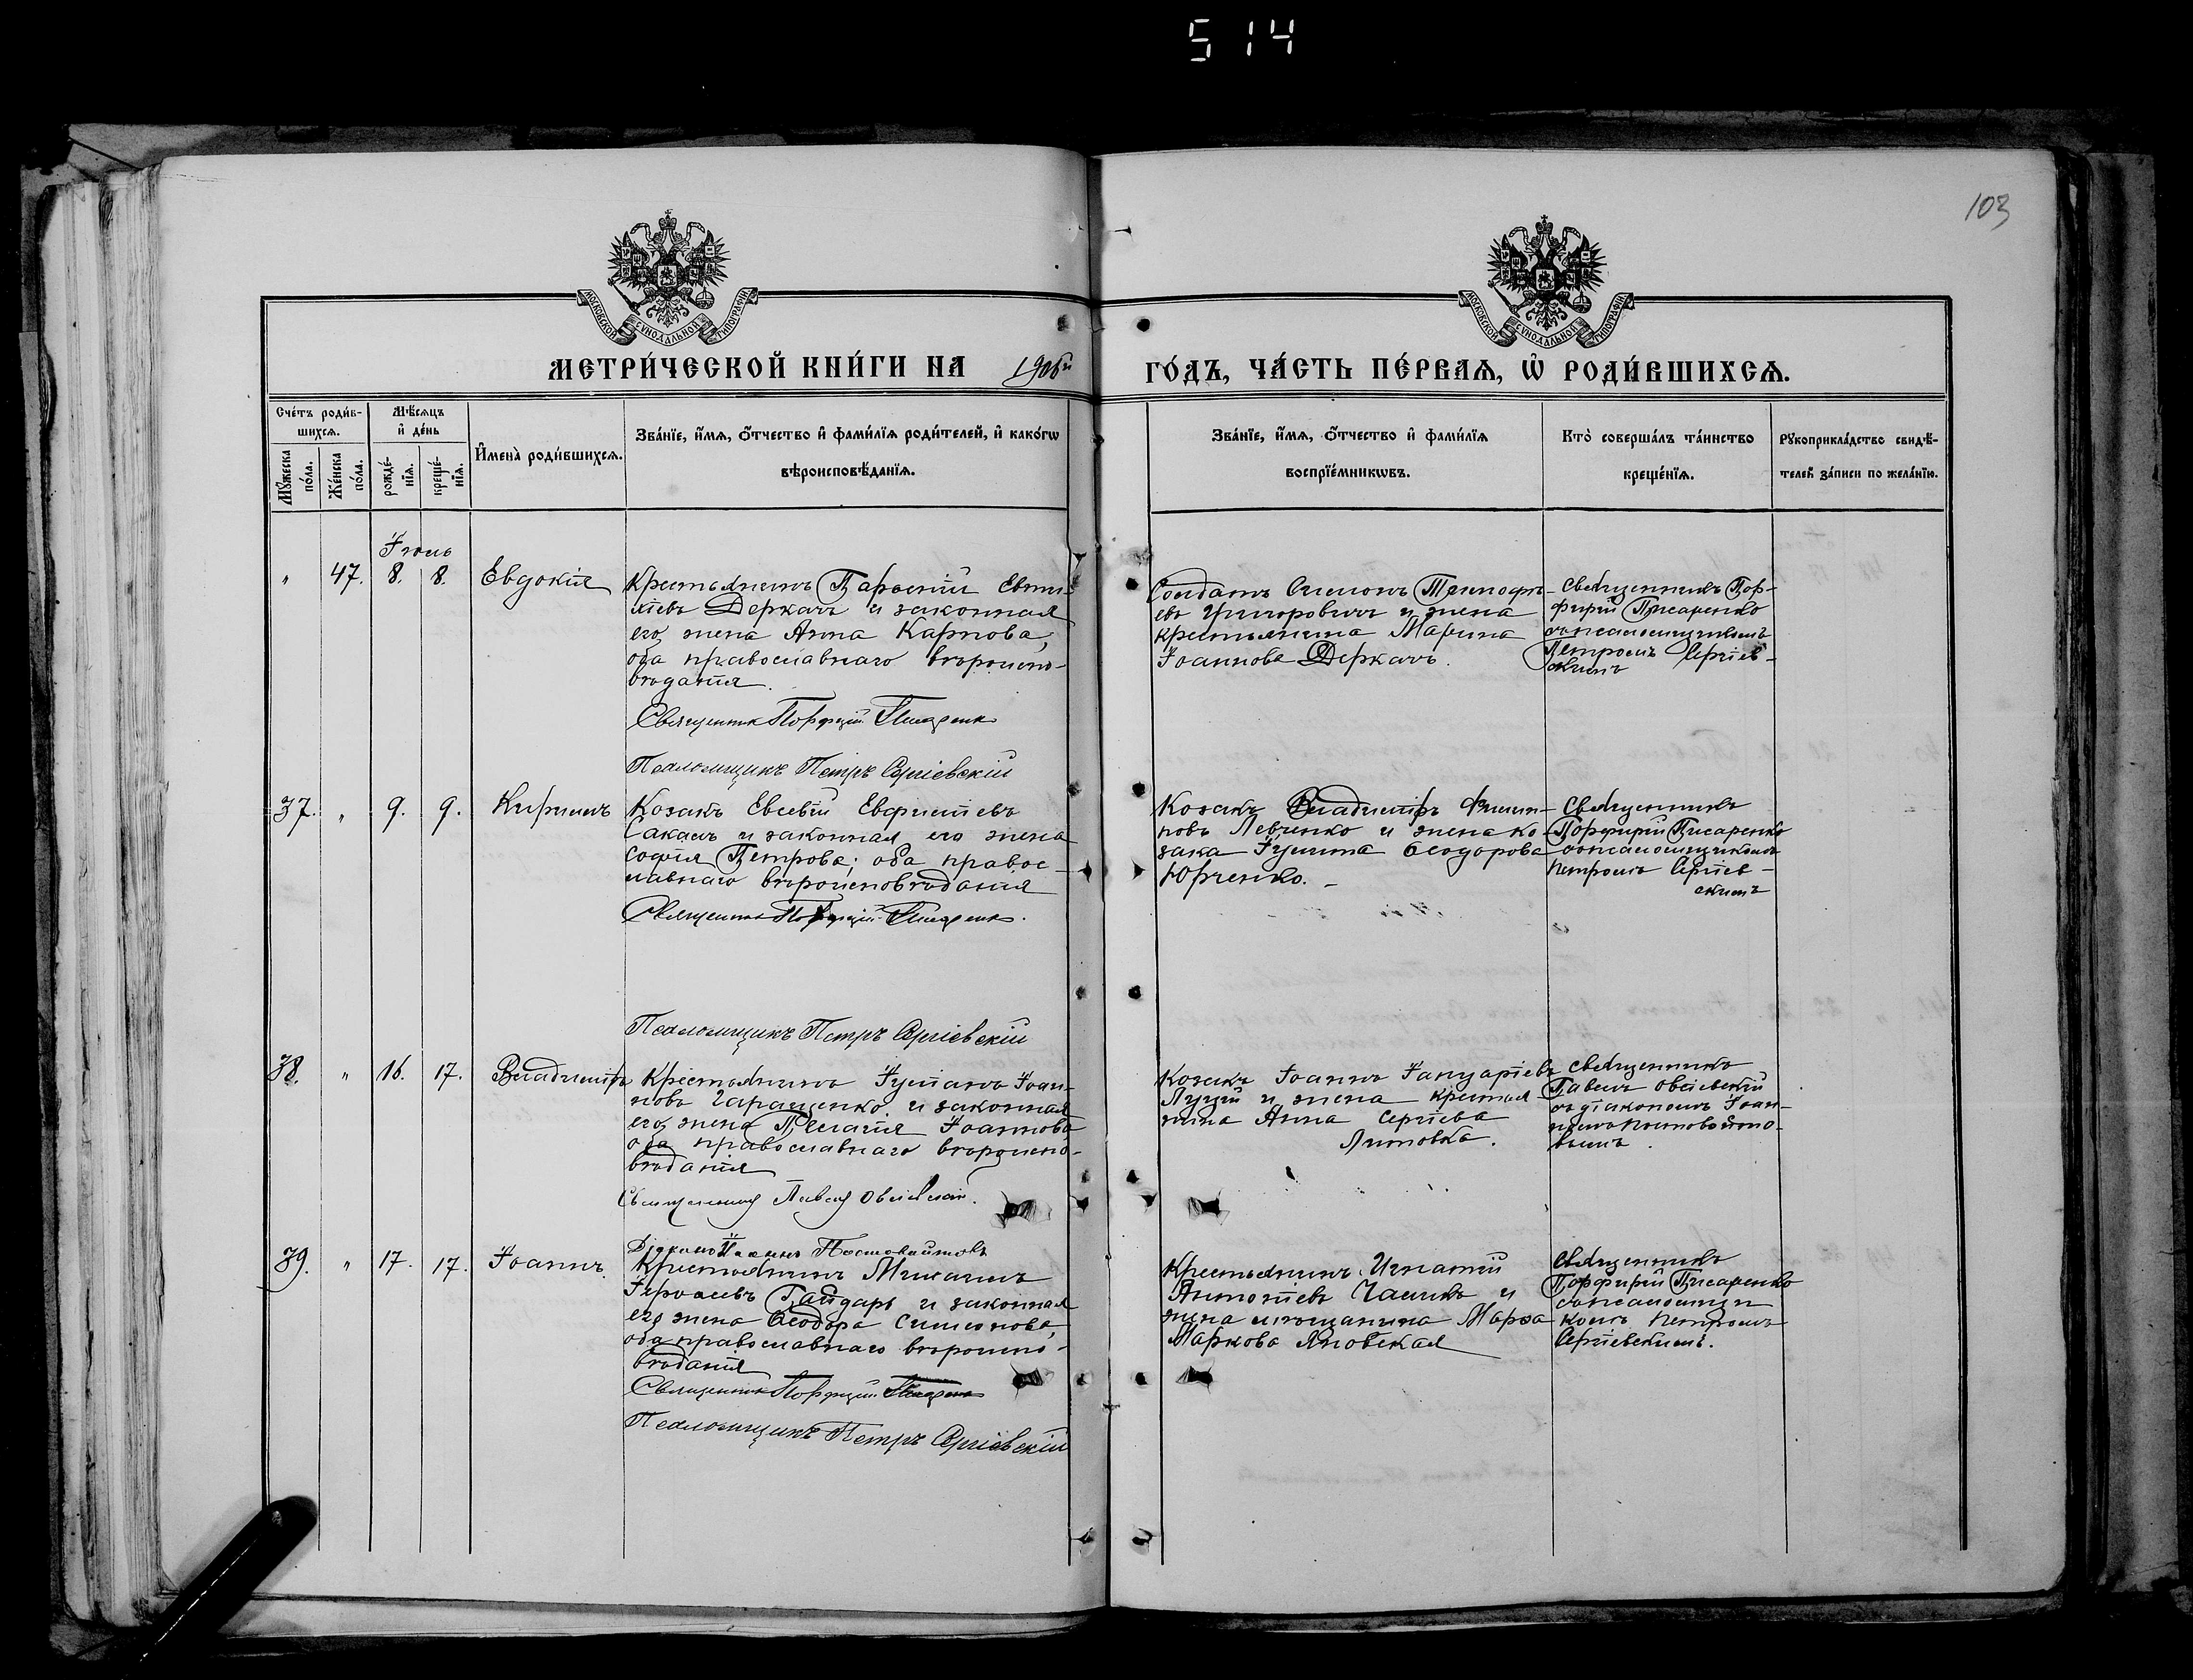 514
103
МОСКОВСКОЙ СѴНОДАЛЬНОЙ ТИПОГРАФІИ
МОСКОВСКОЙ СѴНОДАЛЬНОЙ ТИПОГРАФІИ
МЕТРИ́ЧЕСКОЙ КНИ́ГИ НА 1906й ГО́ДЪ, ЧА́СТЬ ПЕ́РВАѦ, Ѡ҆ РОДИ́ВШИХСѦ.
Сче́тъ роди́в-
шихсѧ.
Мꙋ́жеска по́ла.
Же́нска по́ла.
Мѣ́сѧцъ
и҆ де́нь
рожде́-
нїѧ.
креще́-
нїѧ.
И҆мена̀ роди́вшихсѧ.
Зва́нїе, и҆́мѧ, ѻ҆́тчество и҆ фами́лїѧ роди́телей, и҆ како́гѡ
вѣроисповѣ́данїѧ.
Зва́нїе, и҆́мѧ, ѻ҆́тчество и҆ фами́лїѧ
воспрїе́мникѡвъ.
Кто̀ соверша́лъ та́инство
креще́нїѧ.
Рꙋкоприкла́дство свидѣ́-
телей за́писи по жела́нїю.
Іюль
" 47. 8. 8. Евдокія
Крестьянинъ Парѳеній Евти-
хіевъ Деркачъ и законная
его жена Анна Карпова,
оба православнаго вѣроиспо-
вѣданія.
Священник Порфирій Писаренко
Псаломщикъ Петръ Сергіевскій
Солдатъ Симеонъ
евъ Григоровичъ и жена
крестьянина Марина
Іоаннова Деркачъ.
Священникъ Пор-
фирій Писаренко
съ псаломщикомъ
Петромъ Сергіев-
скимъ
37. " 9. 9. Кириллъ
Козакъ Евсевій
и законная его жена
Софія Петрова; оба правос-
лавнаго вѣроисповѣданія
Священник Порфирій Писаренко.
Псаломщикъ Петръ Сергіевскій
Козакъ Владиміръ Филип-
повъ Левченко и жена ко-
зака Іулита Ѳеодорова
Юрченко.
Священникъ
Порфирій Писаренко
съ псаломщикомъ
Петромъ Сергіев-
скимъ
38. " 16. 17. Владиміръ
Крестьянинъ Іуліанъ Іоан-
новъ Геращенко и законная
его жена Пелагія Іоаннова
оба православнаго вѣроиспо-
вѣданія
Священникъ Павелъ Овсіевскій.
Діаконъ Іоаннъ Постовойтовъ
Козакъ Іоаннъ Іануаріевъ
и жена крестья-
нина Анна Сергіева
Литовка.
Священникъ
Павелъ Овсіевскій
съ діакономъ Іоан-
номъ Постовойто-
вымъ.
39. " 17. 17. Іоаннъ.
Крестьянинъ Михаилъ
Гайдаръ и законная
его жена Ѳеодора Симеонова,
оба православнаго вѣроиспо-
вѣданія
Священник Порфирій Писаренко
Псаломщикъ Петръ Сергіевскій
Крестьянинъ Игнатій
Антоніевъ и
жена мѣщанина Марѳа
Маркова Яновская
Священникъ
Порфирій Писаренко
съ псаломщи
комъ Петромъ
Сергіевскимъ.